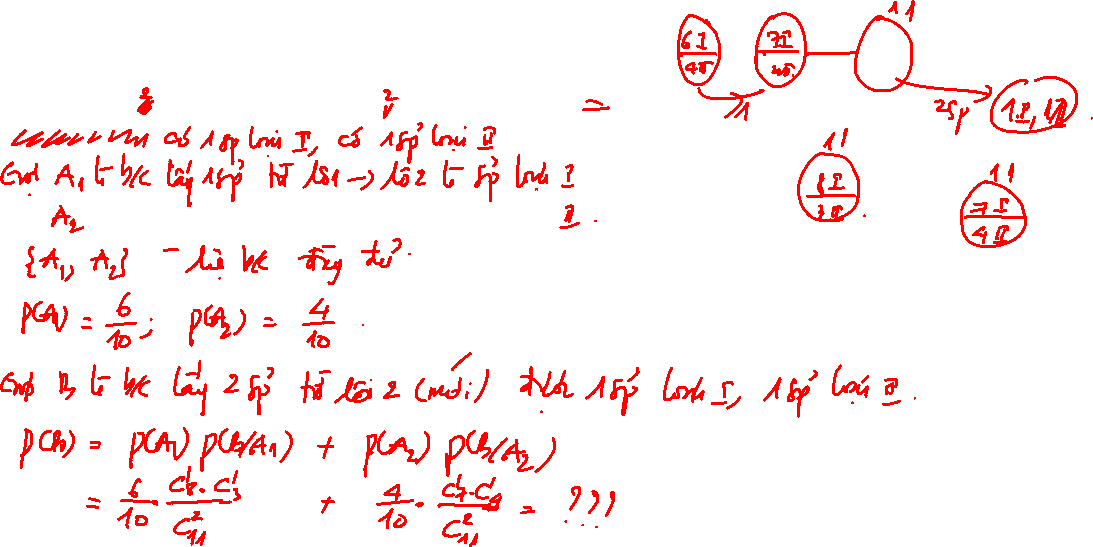 6I/4II 7I/3II 11
1
2sp 1I, 1II
11 11
8I/3II 7I/4II
có 1 sp loại I, có 1 sp loại II
Gọi A₁ là b/c lấy 1 sp từ lô 1 → lô 2 là sp loại I
A₂ II.
{A₁, A₂} - hệ b/c đầy đủ.
P(A₁) = 6/10; P(A₂) = 4/10.
Gọi B là b/c lấy 2 sp từ lô 2 (mới) được 1 sp loại I, 1 sp loại II.
P(B) = P(A₁) P(B/A₁) + P(A₂) P(B/A₂)
= 6/10 · C¹₈·C¹₃/C²₁₁ + 4/10 · C¹₇·C¹₄/C²₁₁ = ???